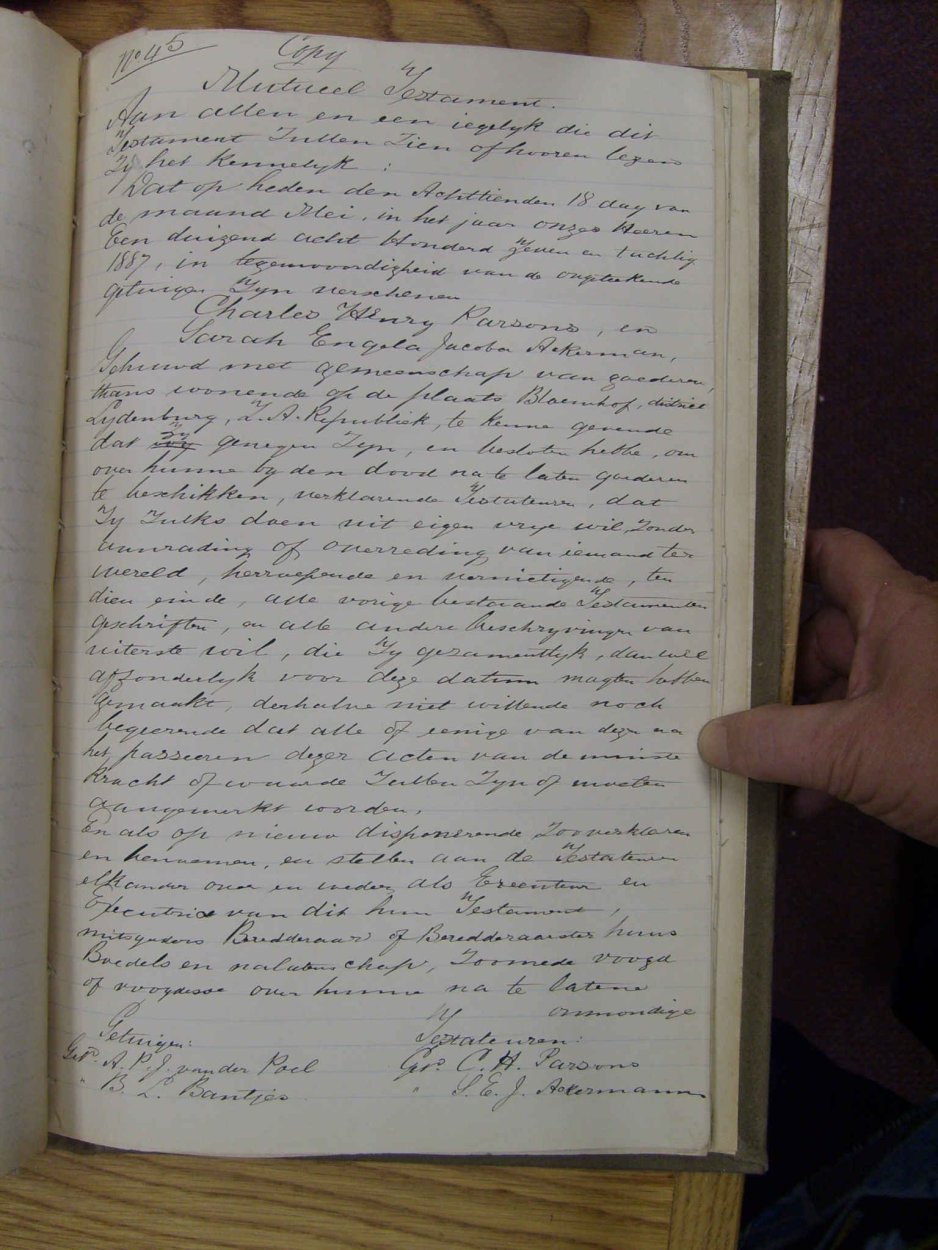 No 45 Copy
Mutueel Testament.
Aan allen en een iegelyk die dit
Testament Zullen Zien of hooren lezen
Zy het kennelyk :
Dat op heden den Achttienden 18 day van
de maand Mei, in het jaar onzes Heeren
Een duizend acht Honderd zeven en tachtig
1887, in tegenwoordigheid van de ongeteekende
getuigen Zyn verschenen
Charles Henry Parsons, en
Sarah Engela Jacoba Ackerman,
Gehuwd met gemeenschap van goederen,
thans wonende op de plaats Bloemhof, district
Lydenburg, Z. A. Republiek, te kenne gevende
dat zy genegen Zyn, en besloten hebbe, om
over hunne by den dood na te laten goederen
te beschikken, verklarende Testateuren, dat
Zy Zulks doen uit eigen vrye wil, Zonder
aanrading of overreding van iemand ter
wereld, herroepende en vernietigende, ten
dien einde, alle vorige bestaande Testamenten
geschriften, en alle andere beschryvingen van
uiterste wil, die Zy gezamentlyk, dan wel
afzonderlyk voor deze datum mogten hebben
gemaakt, derhalve niet willende noch
begeerende dat alle of eenige van dezen na
het passeeren dezer acten van de minste
kracht of waarde Zullen Zyn of moeten
aangemerkt worden.
En als op nieuw disponerende Zoo verklaren
en benoemen, en stellen aan de Testateuren
elkander over en weder, als Executeur en
Executrice van dit hun Testament,
mitsgaders Beredderaar of Beredderaarster huns
Boedels en nalatenschap, Zoomede voogd
of voogdesse over hunne na te latene
onmondige
Getuigen: Testateuren:
Getd. A. P. J. van der Poel Getd. C. H. Parsons
" B. L. Bantjes " S. E. J. Ackermann